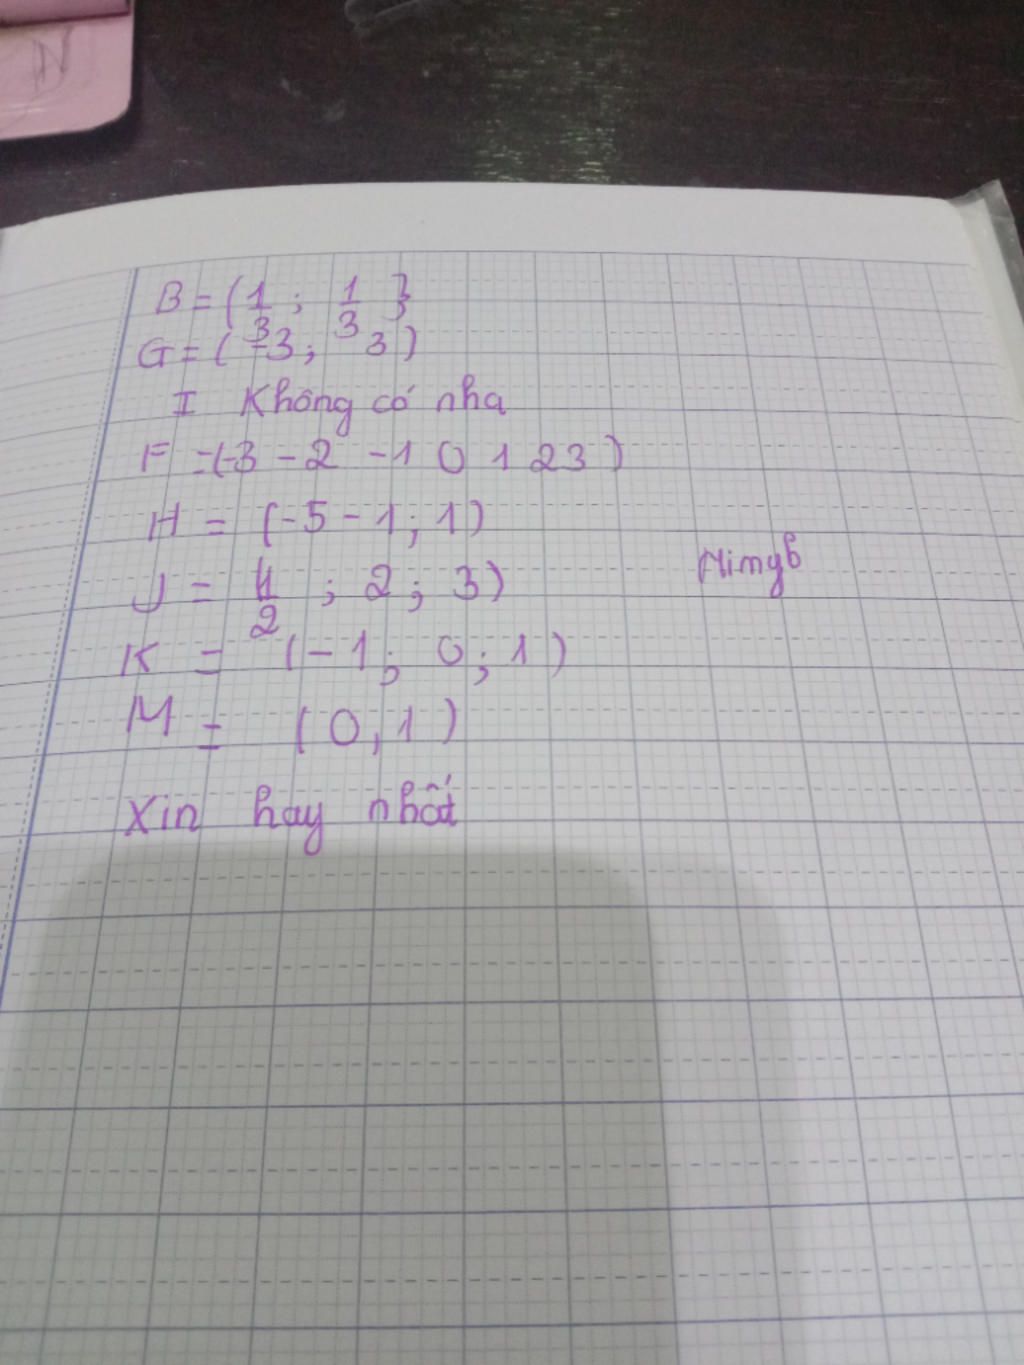 B = { 1/3 ; 1/3 }
G = ( -3 ; 3 )
I Không có nha
F = (-3 -2 -1 0 1 2 3 )
H = (-5 -1 ; 1 )
J = 1/2 ; 2 ; 3 )
K = ( -1 ; 0 ; 1 )
M = ( 0, 1 )
Xin hay nhất